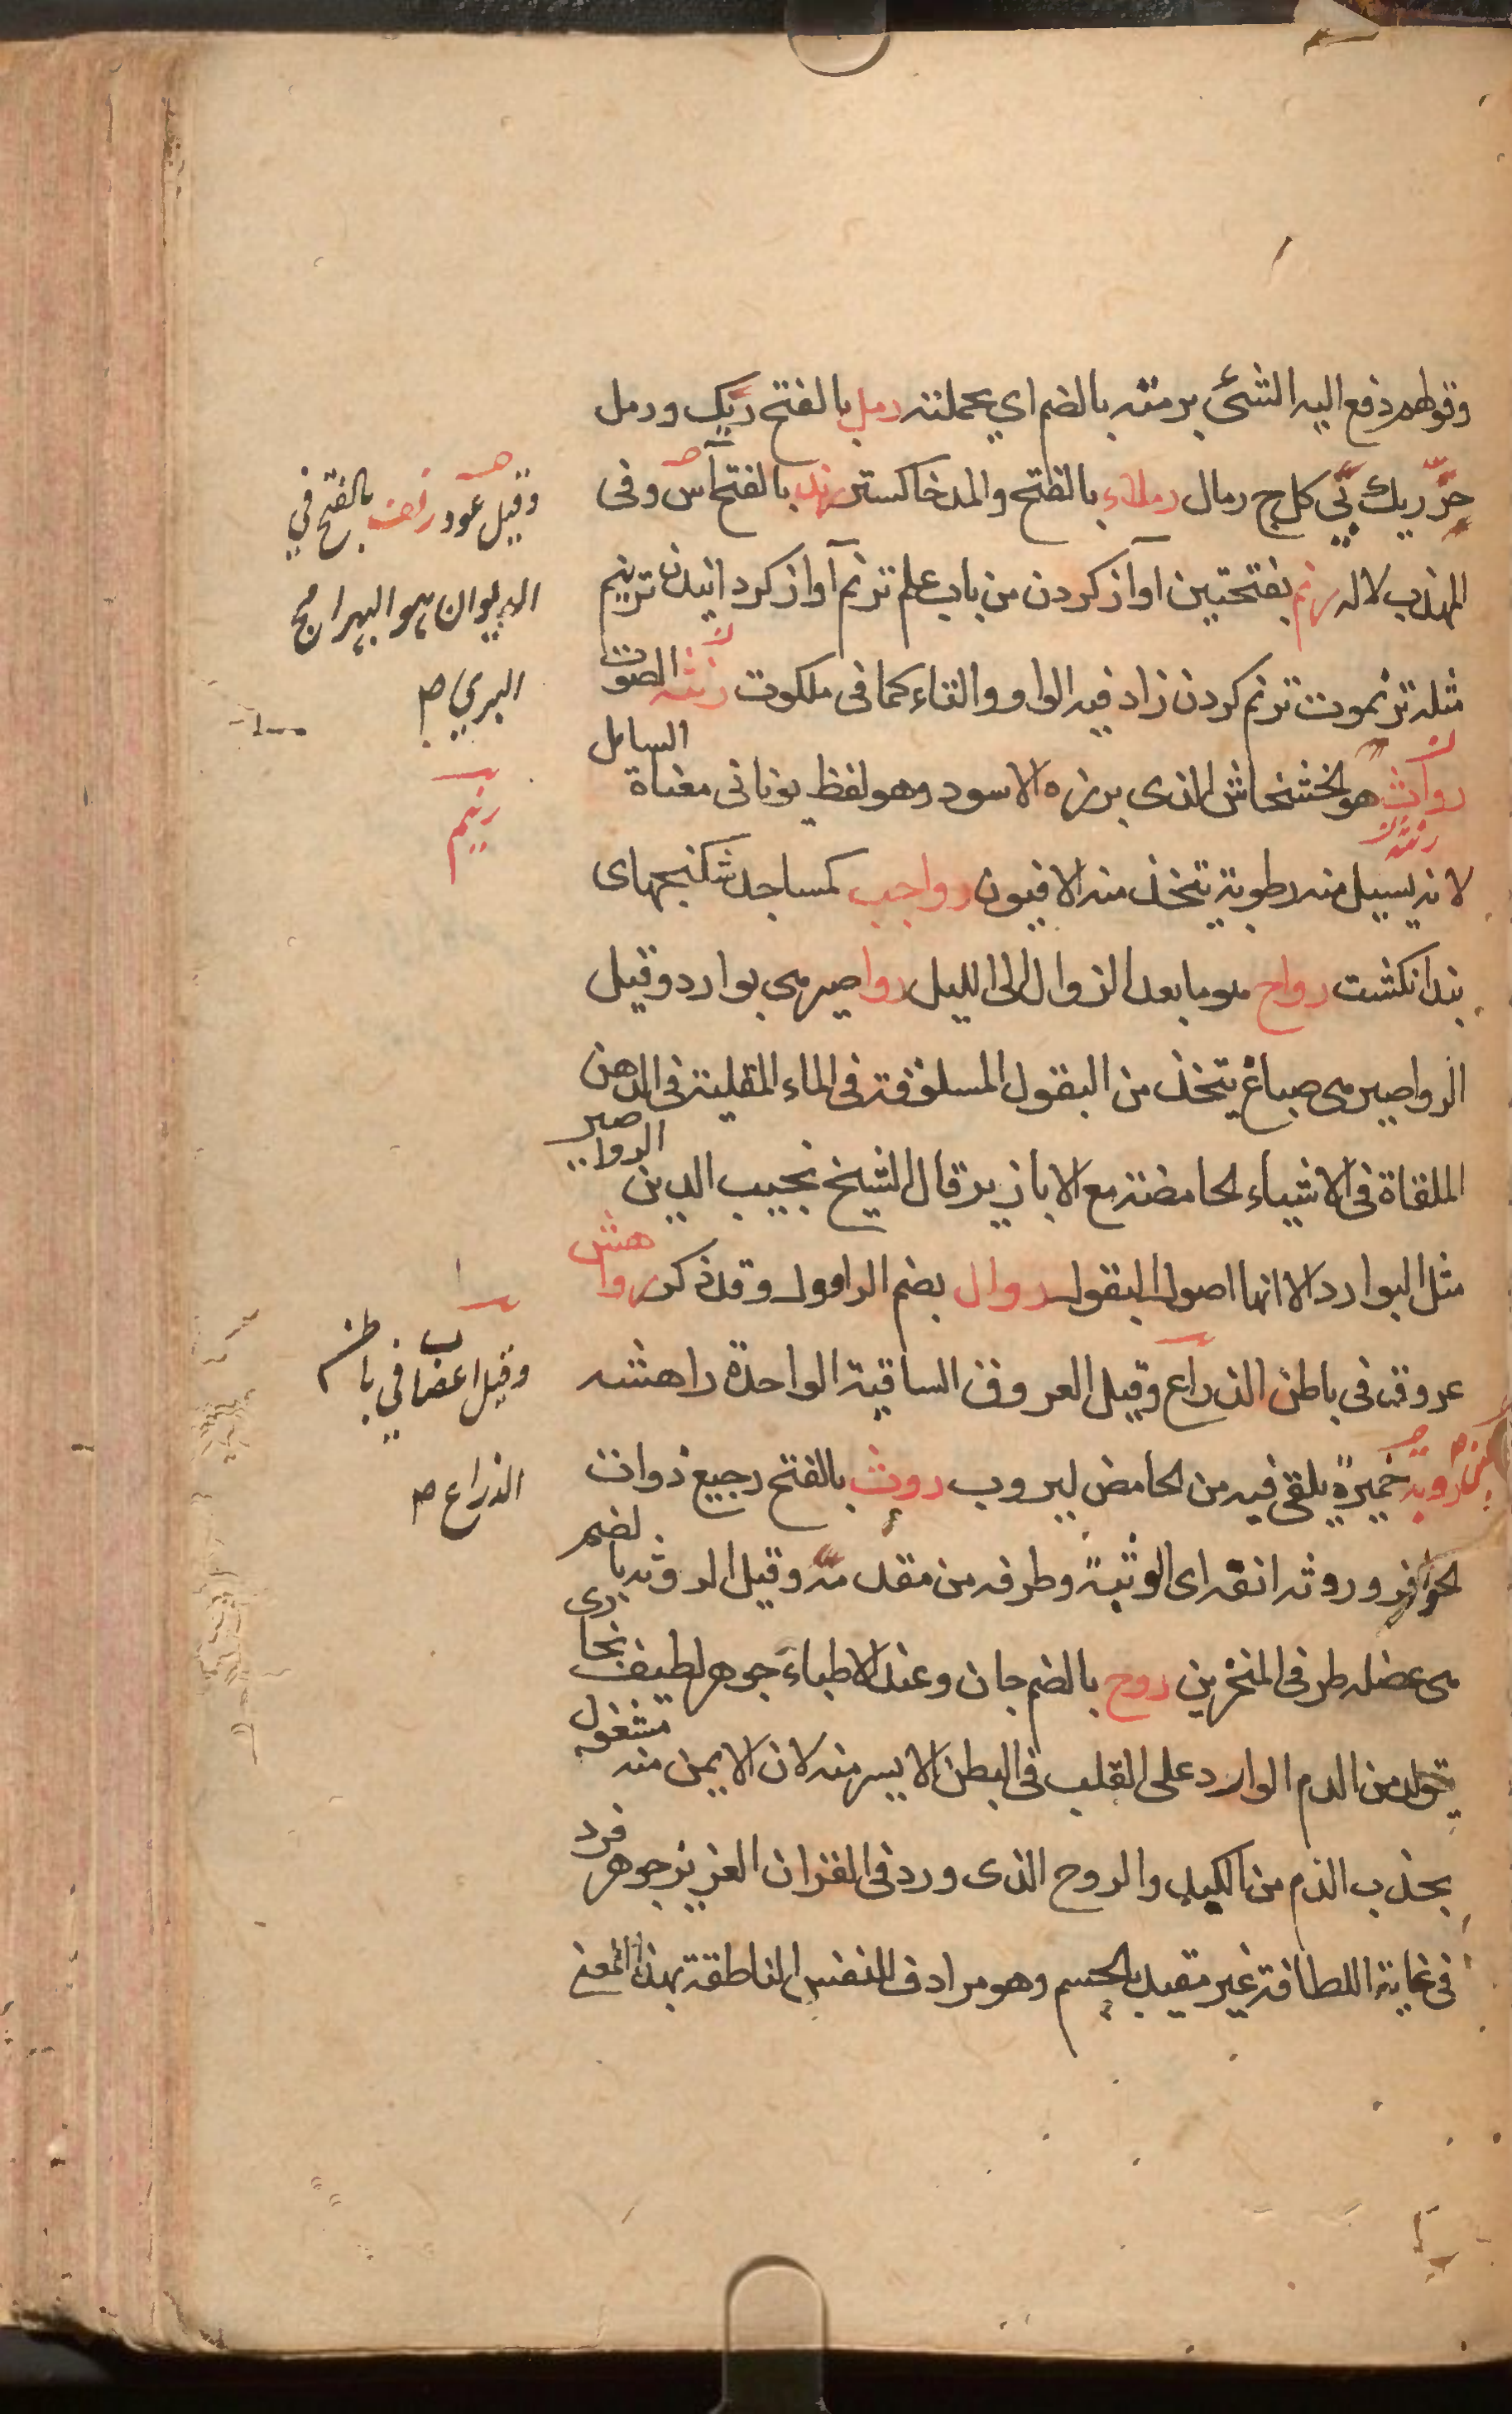 وقولهم دفع اليه الشئ برمته بالضم اي بجملته رمل بالفتح ريك ورمل
حرّ ريك پى كل ج رمال رملاء بالفتح والمد خاكستر رند بالفتح آس وفى
المهذب لاله رنم بفتحتين آواز كردن من باب علم ترنم آواز كردانيدن ترنيم
مثله ترنموت ترنم كردن زاد فيه الواو والتاء كما فى ملكوت رنّه الصوت
رواس هو الخشخاش الذى بزره الاسود وهو لفظ يونانى معناه السايل
لانه يسيل منه رطوبة يتخذ منه الافيون رواجب كمساجد شكنجهاى
بند انكشت رواح هو ما بعد الزوال الى الليل رواصير هى بوارد وقيل
الرواصير هى صباغ يتخذ من البقول المسلوقة فى الماء المقلية فى الدهن
الملقاة فى الاشياء الحامضة مع الابازير قال الشيخ نجيب الدين الرواصير
مثل البوارد الا انها اصول البقول روال بضم الراوول وقد ذكر رواهش
عروق فى باطن الذراع وقيل العروق الساقية الواحدة راهشه
روبة خميرة يلقى فيه من الحامض ليروب روث بالفتح رجيع ذوات
الحوافر وروثه انفه اى الوثبة وطرفه من مقدمه وقيل الروثه بالضم
هى عضله طرفى المنخرين روح بالضم جان وعند الاطباء جوهر لطيف بخارى
يتولد من الدم الوارد على القلب فى البطن الايسر منه لان الايمن منه مشغول
بجذب الدم من الكبد والروح الذى ورد فى القران العزيز جوهر فرد
فى غاية اللطافة غير مقيد بالجسم وهو مرادف النفس الناطقة بهذا المعنى
وقيل عود رنف بالفتح في
الديوان هو البهرامج
البري ص
رنيم
وقيل اعصاب في باطن
الذراع ص